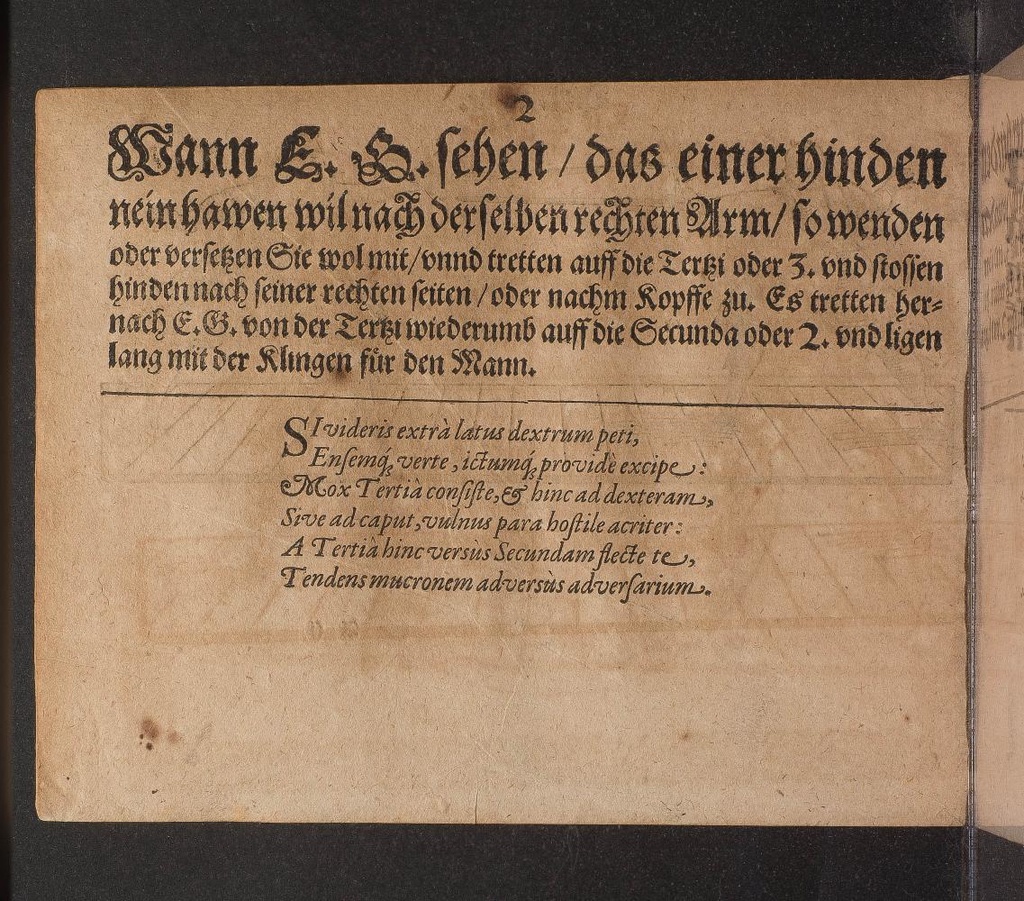 2
Wann E. G. sehen / das einer hinden
nein hawen wil nach derselben rechten Arm / so wenden
oder versetzen Sie wol mit / vnnd tretten auff die Tertzi oder 3. vnd stossen
hinden nach seiner rechten seiten / oder nachm Kopffe zu. Es tretten her-
nach E. G. von der Tertzi wiederumb auff die Secunda oder 2. vnd ligen
lang mit der Klingen für den Mann.
SI videris extrà latus dextrum peti,
Ensemq́; verte, ictumq́; providè excipe:
Mox Tertiâ consiste, & hinc ad dexteram,
Sive ad caput, vulnus para hostile acriter:
A Tertiâ hinc versùs Secundam flecte te,
Tendens mucronem adversùs adversarium.